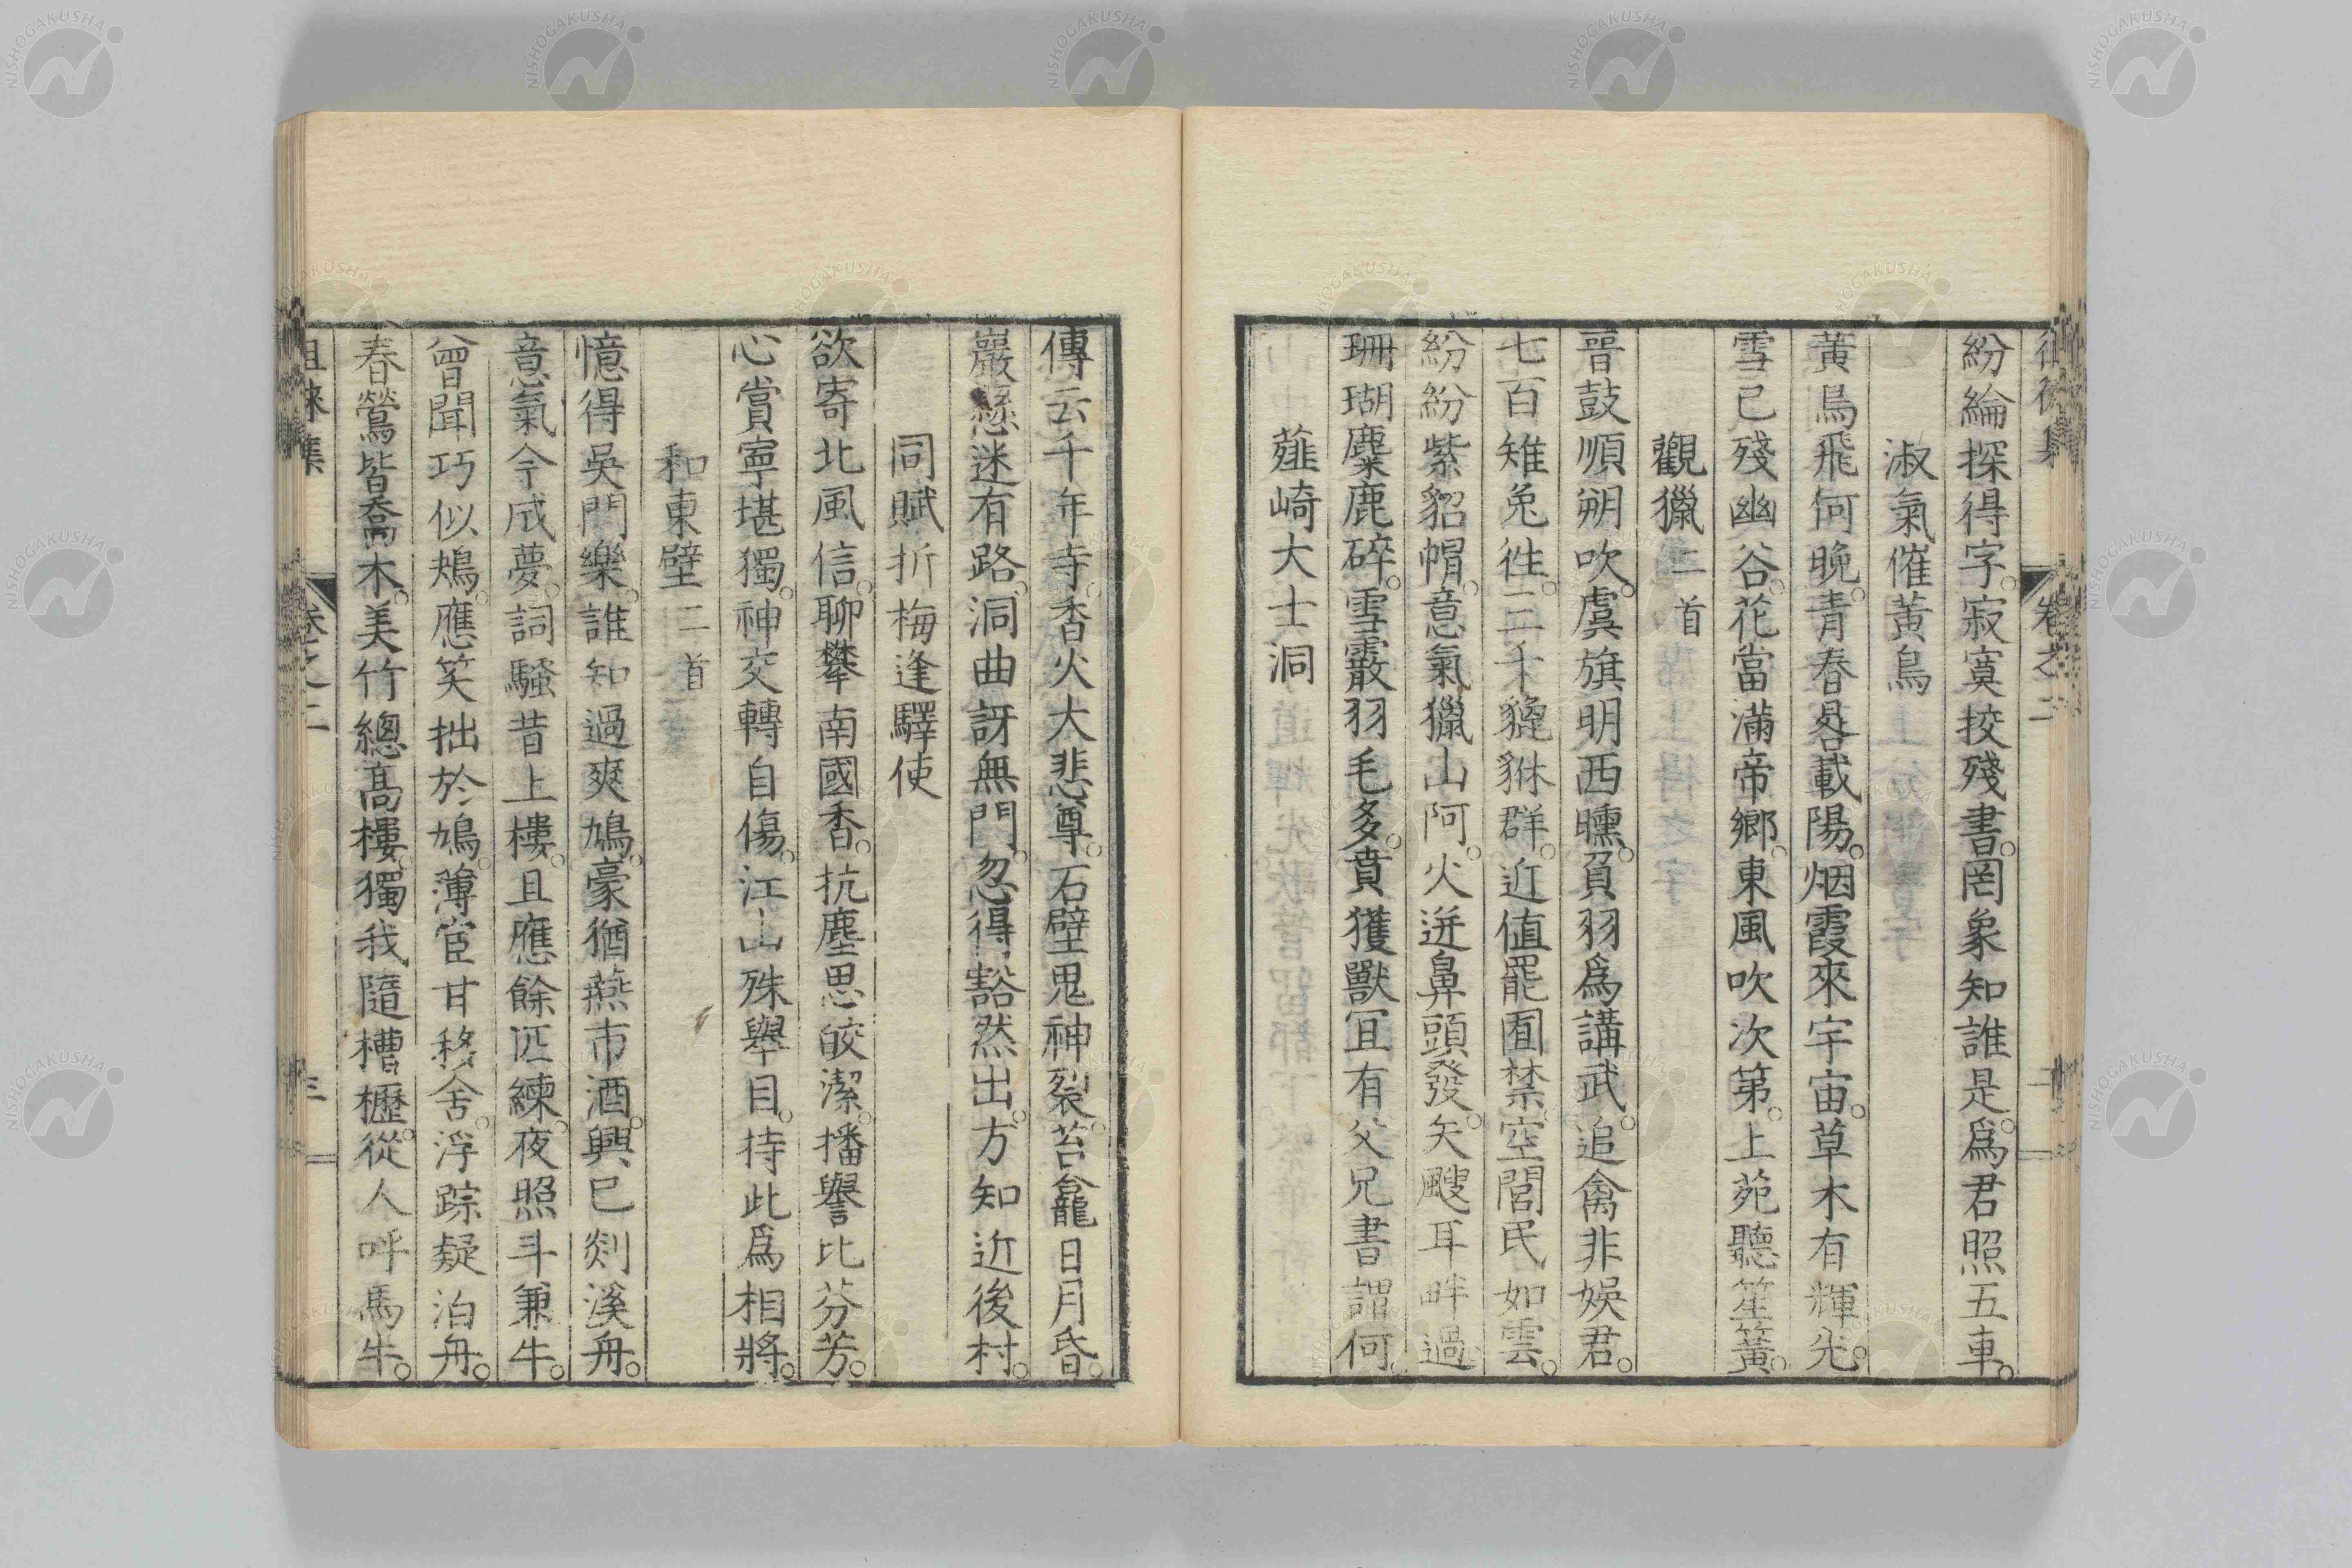 紛綸探得字。寂寞挍殘書。罔象知誰是。爲君照五車。
淑氣催黃鳥
黃鳥飛何晚。青春畧載陽。烟霞來宇宙。草木有輝光。
雪已殘幽谷。花當滿帝鄉。東風吹次第。上苑聽笙簧。
觀獵二首
晉鼓順朔吹。虞旗明西曛。負羽爲講武。追禽非娯君。
七百雉兔徃。三千貔貅群。近値罷囿禁。空閭民如雲。
紛紛紫貂帽。意氣獵山阿。火迸鼻頭發。矢颼耳畔過。
珊瑚麋鹿碎。雪霰羽毛多。賁獲獸冝有。父兄書謂何。
薤崎大士洞
傳云千年寺。香火大悲尊。石壁鬼神裂。苔龕日月昏。
巖懸迷有路。洞曲訝無門。忽得豁然出。方知近後村。
同賦折梅逢驛使
欲寄北風信。聊攀南國香。抗塵思皎潔。播譽比芬芳。
心賞寧堪獨。神交轉自傷。江山殊舉目。持此爲相將。
和東壁二首
憶得吳門樂。誰知過爽鳩。豪猶燕市酒。興已剡溪舟。
意氣今成夢。詞騷昔上樓。且應餘匹練。夜照斗兼牛。
曾聞巧似鳩。應笑拙於鳩。薄宦甘移舍。浮踪疑泊舟。
春鶯皆喬木。美竹總高樓。獨我隨槽櫪。從人呼馬牛。
徂徠集
卷之二
三